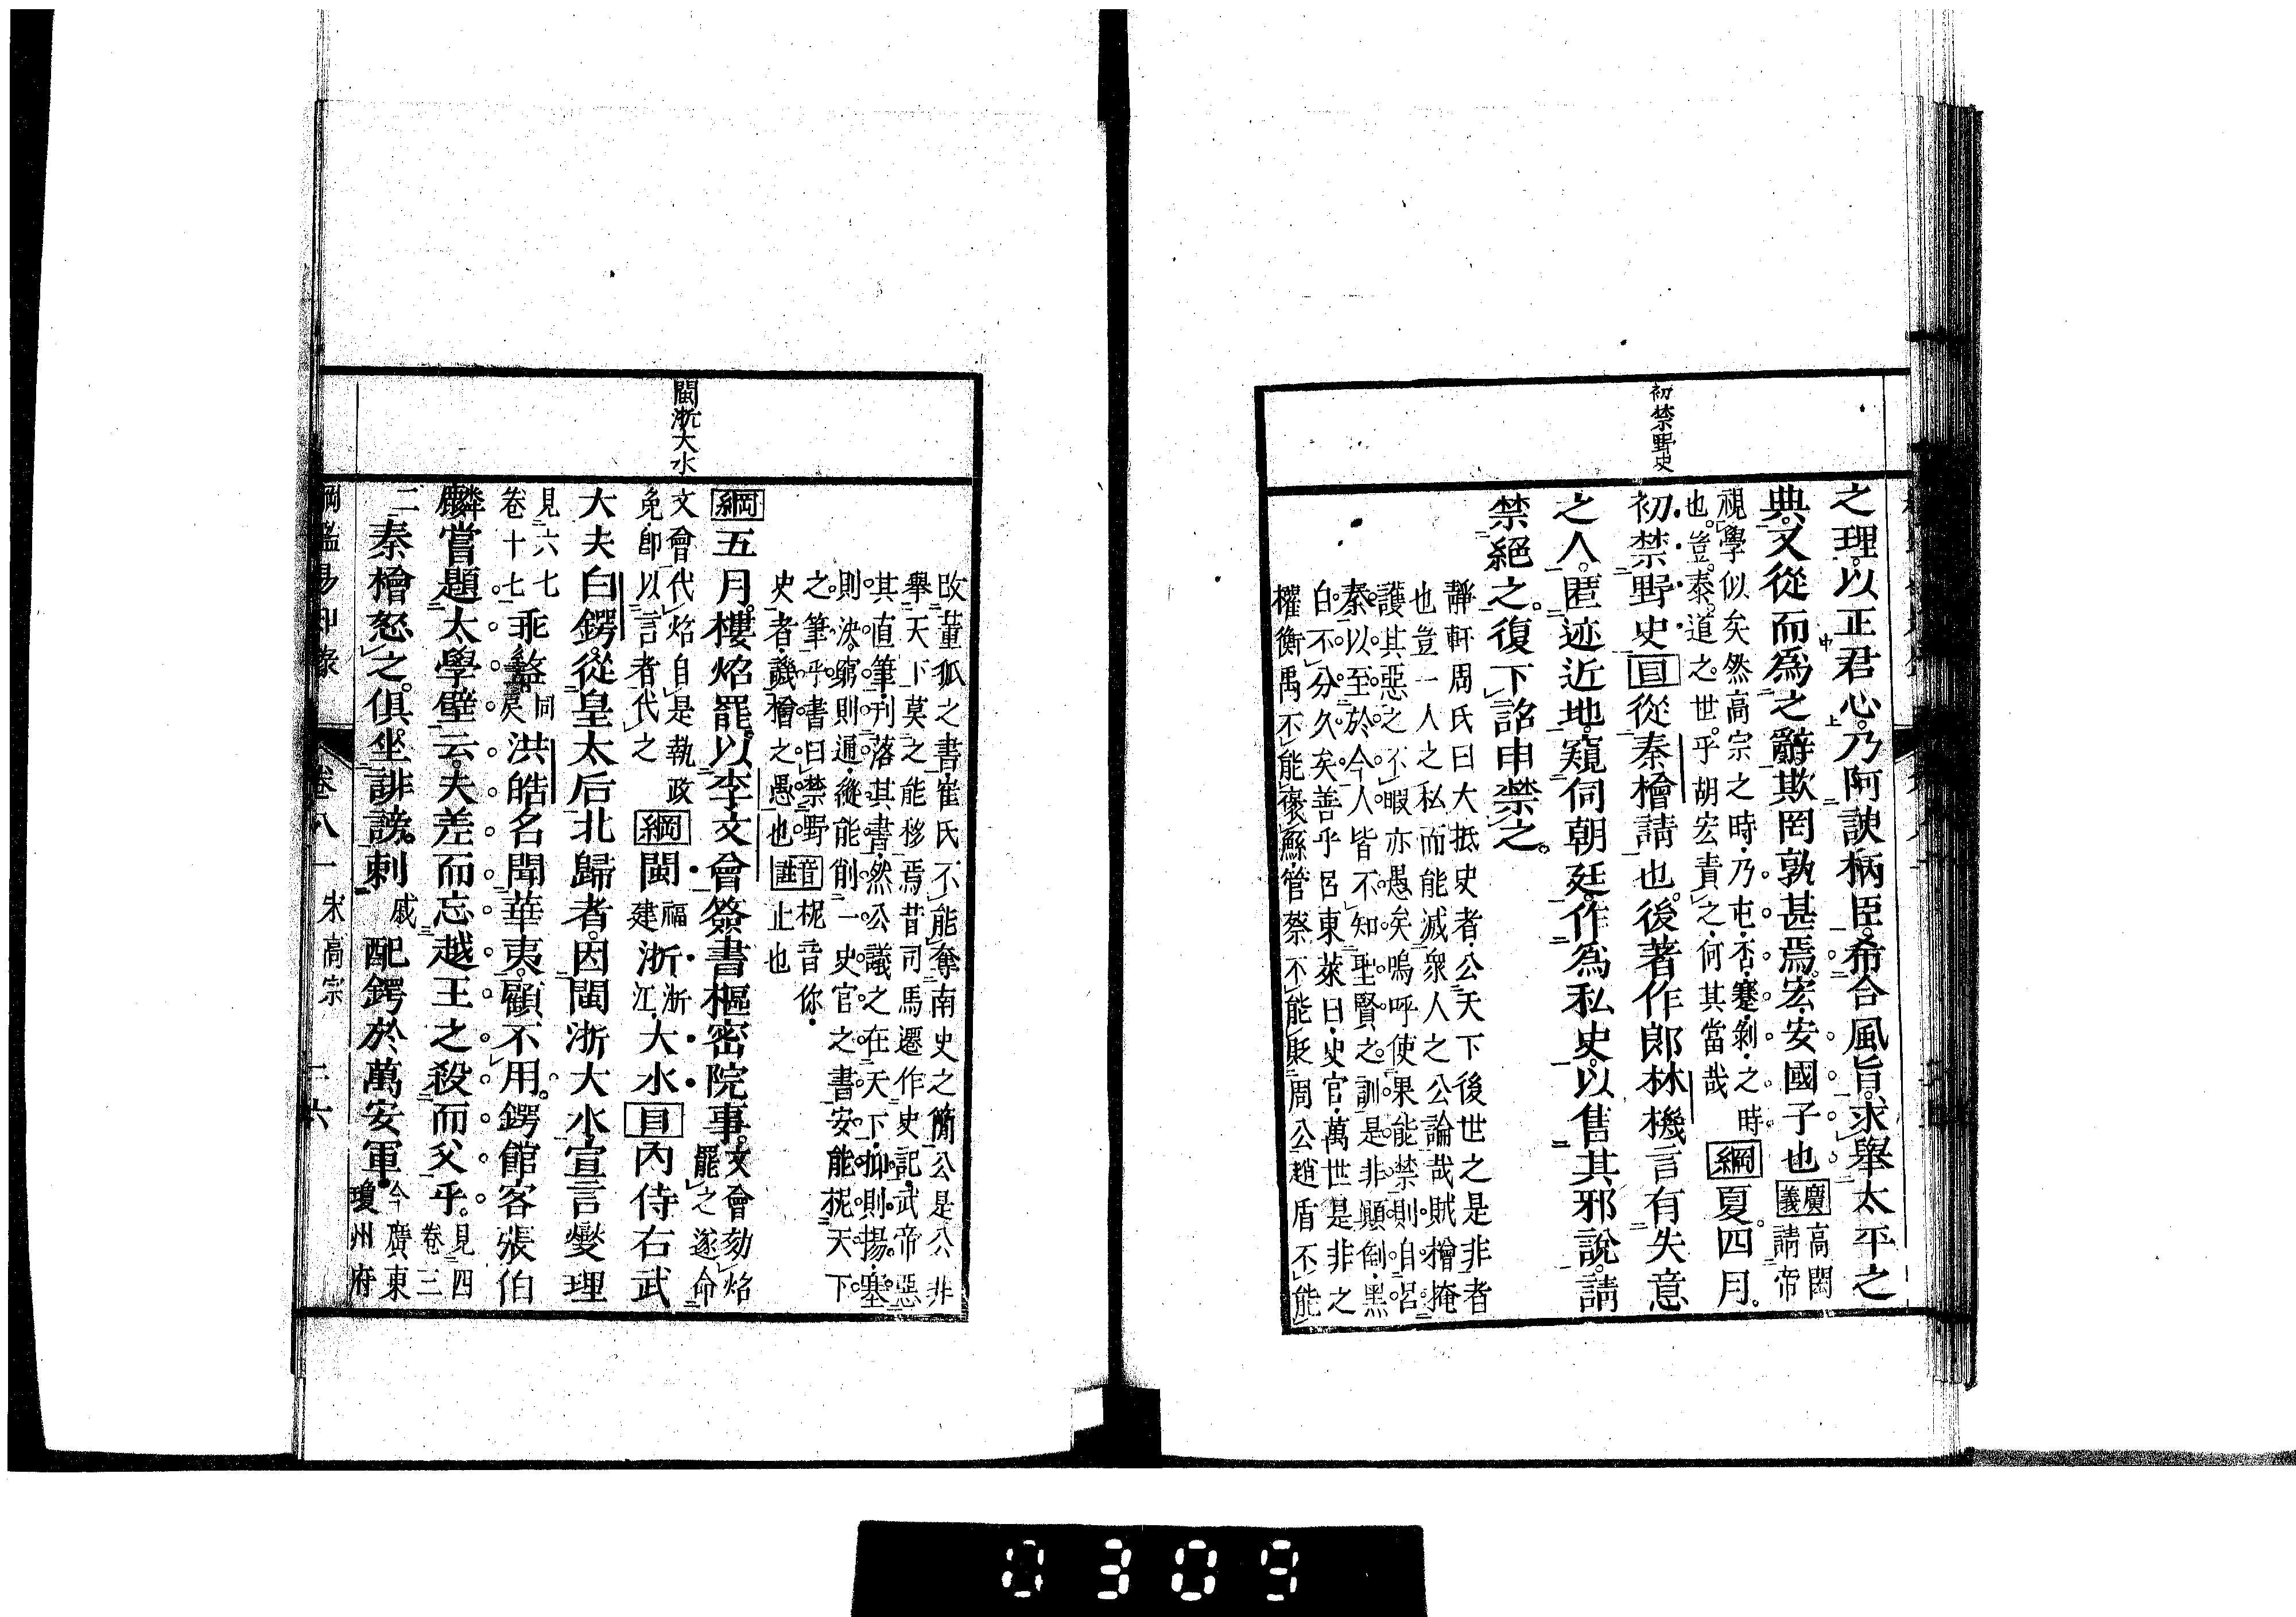 初禁野史
之理。以正君心。乃阿諛柄臣。希合風旨。求舉太平之
典。又從而爲之辭。欺罔孰甚焉。宏安國子也廣義高閌請帝
視學似矣然高宗之時乃屯否蹇剝之時
也。豈泰道之世乎胡宏責之何其當哉
綱夏四月。
初禁野史目從秦檜請也。後著作郎林機言有失意
之人。匿迹近地。窺伺朝廷。作爲私史。以售其邪說。請
禁絕之。復下詔申禁之。
靜軒周氏曰大抵史者公天下後世之是非者
也豈一人之私而能滅衆人之公論哉賊檜掩
護其惡之不暇亦愚矣嗚呼使果能禁則自呂
秦以至於今人皆不知聖賢之訓是非顚倒黑
白不分久矣善乎呂東萊曰史官萬世是非之
權衡禹不能褒鯀管蔡不能貶周公趙盾不能
閩浙大水
改董狐之書崔氏不能奪南史之簡公是公非
舉天下莫之能移焉昔司馬遷作史記武帝惡
其直筆刊落其書然公議之在天下抑則揚塞
則決窮則通縱能削一史官之書安能柅天下
之筆乎書曰禁野
史者譏檜之愚也
音註柅音你止也
綱五月。樓炤罷。以李文會簽書樞密院事。文會劾炤罷之遂命
文會代炤自是執政
免卽以言者代之
綱閩福建浙浙江大水目內侍右武
大夫白鍔。從皇太后北歸者。因閩浙大水。宣言燮理
見六七
卷十七
乖盭同戾洪皓名聞華夷。顧不用。鍔館客張伯
麟嘗題太學壁云。夫差而忘越王之殺而父乎。見四卷三
二秦檜怒之。俱坐誹謗。刺戚配鍔於萬安軍今廣東瓊州府
綱鑑易知錄 卷八一 宋高宗 三六
0309